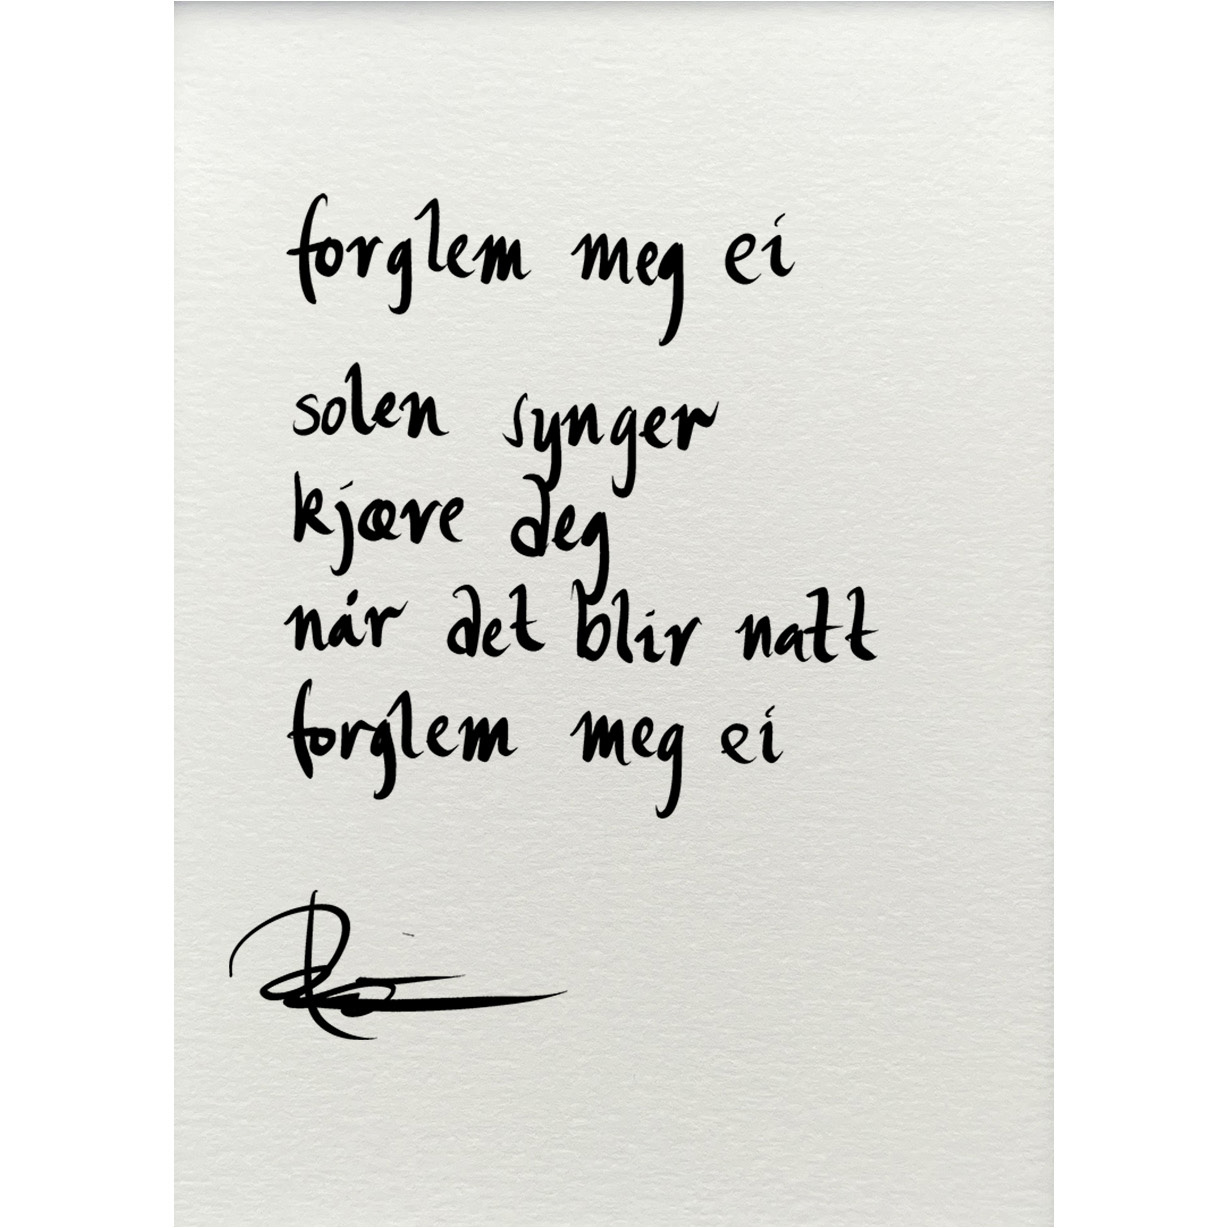 forglem meg ei
solen synger
kjære deg
når det blir natt
forglem meg ei